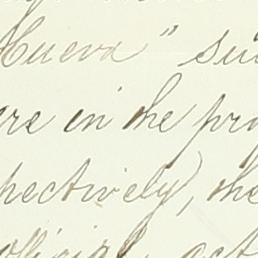 Nueva" su
are in the pro
pectively, the
official, act